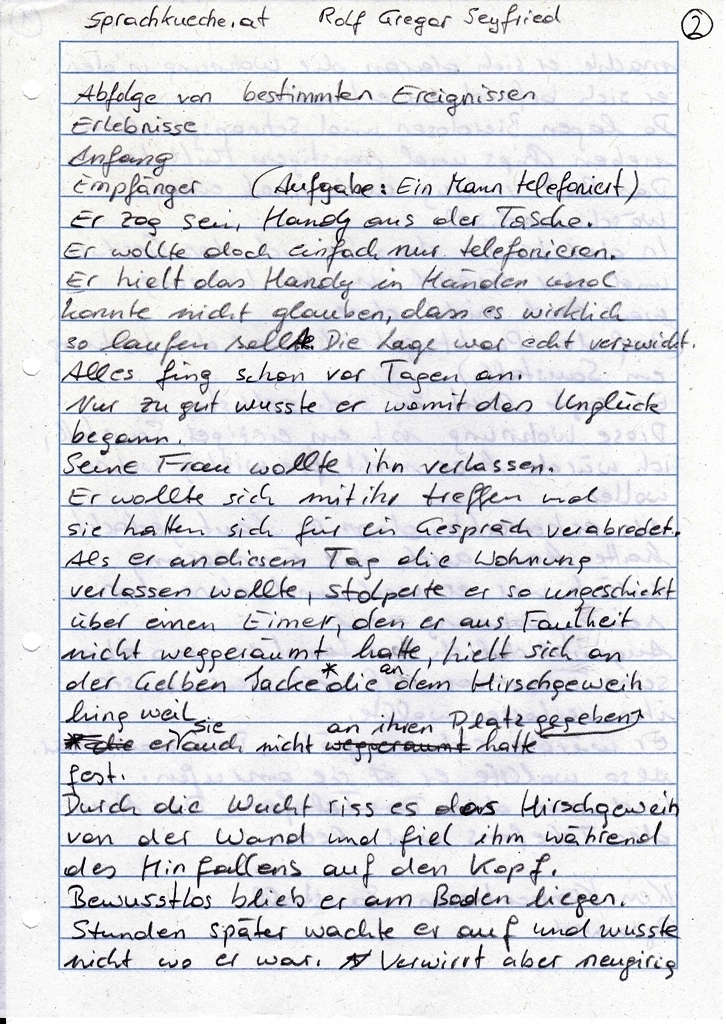 sprachkueche.at Rolf Gregor Seyfried 2
Abfolge von bestimmten Ereignissen
Erlebnisse
Anfang
Empfänger (Aufgabe: Ein Mann telefoniert)
Er zog sein Handy aus der Tasche.
Er wollte doch einfach nur telefonieren.
Er hielt das Handy in Händen und
konnte nicht glauben, dass es wirklich
so laufen sollte. Die Lage war echt verzwickt.
Alles fing schon vor Tagen an.
Nur zu gut wusste er womit das Unglück
begann.
Seine Frau wollte ihn verlassen.
Er wollte sich mit ihr treffen und
sie hatten sich für ein Gespräch verabredet.
Als er an diesem Tag die Wohnung
verlassen wollte, stolperte er so ungeschickt
über einen Eimer, den er aus Faulheit
nicht weggeräumt hatte, hielt sich an
der Gelben Jacke * die an dem Hirschgeweih
hing weil
* die er sie auch nicht weggeräumt an ihren Platz gegeben hatte
fest.
Durch die Wucht riss es das Hirschgeweih
von der Wand und fiel ihm während
des Hinfallens auf den Kopf.
Bewusstlos blieb er am Boden liegen.
Stunden später wachte er auf und wusste
nicht wo er war. Verwirrt aber neugirig